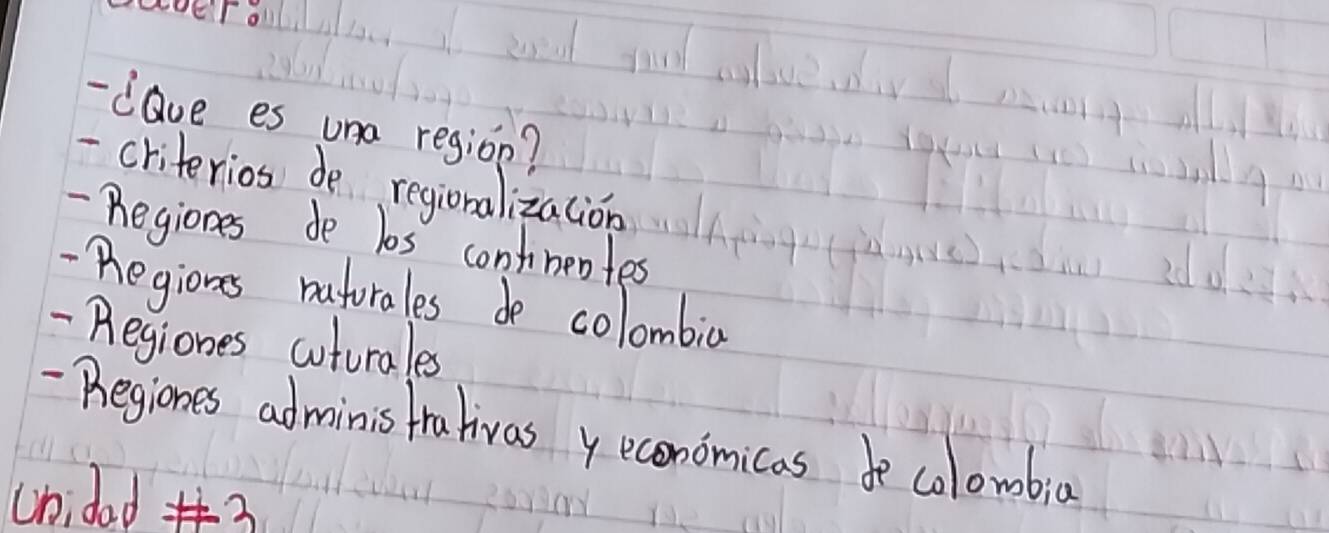 -¿Que es una región?
- criterios de regionalización
- Regiones de los continentes
- Regiones naturales de colombia
- Regiones culturales
- Regiones administrativas y económicas de colombia
Unidad #3